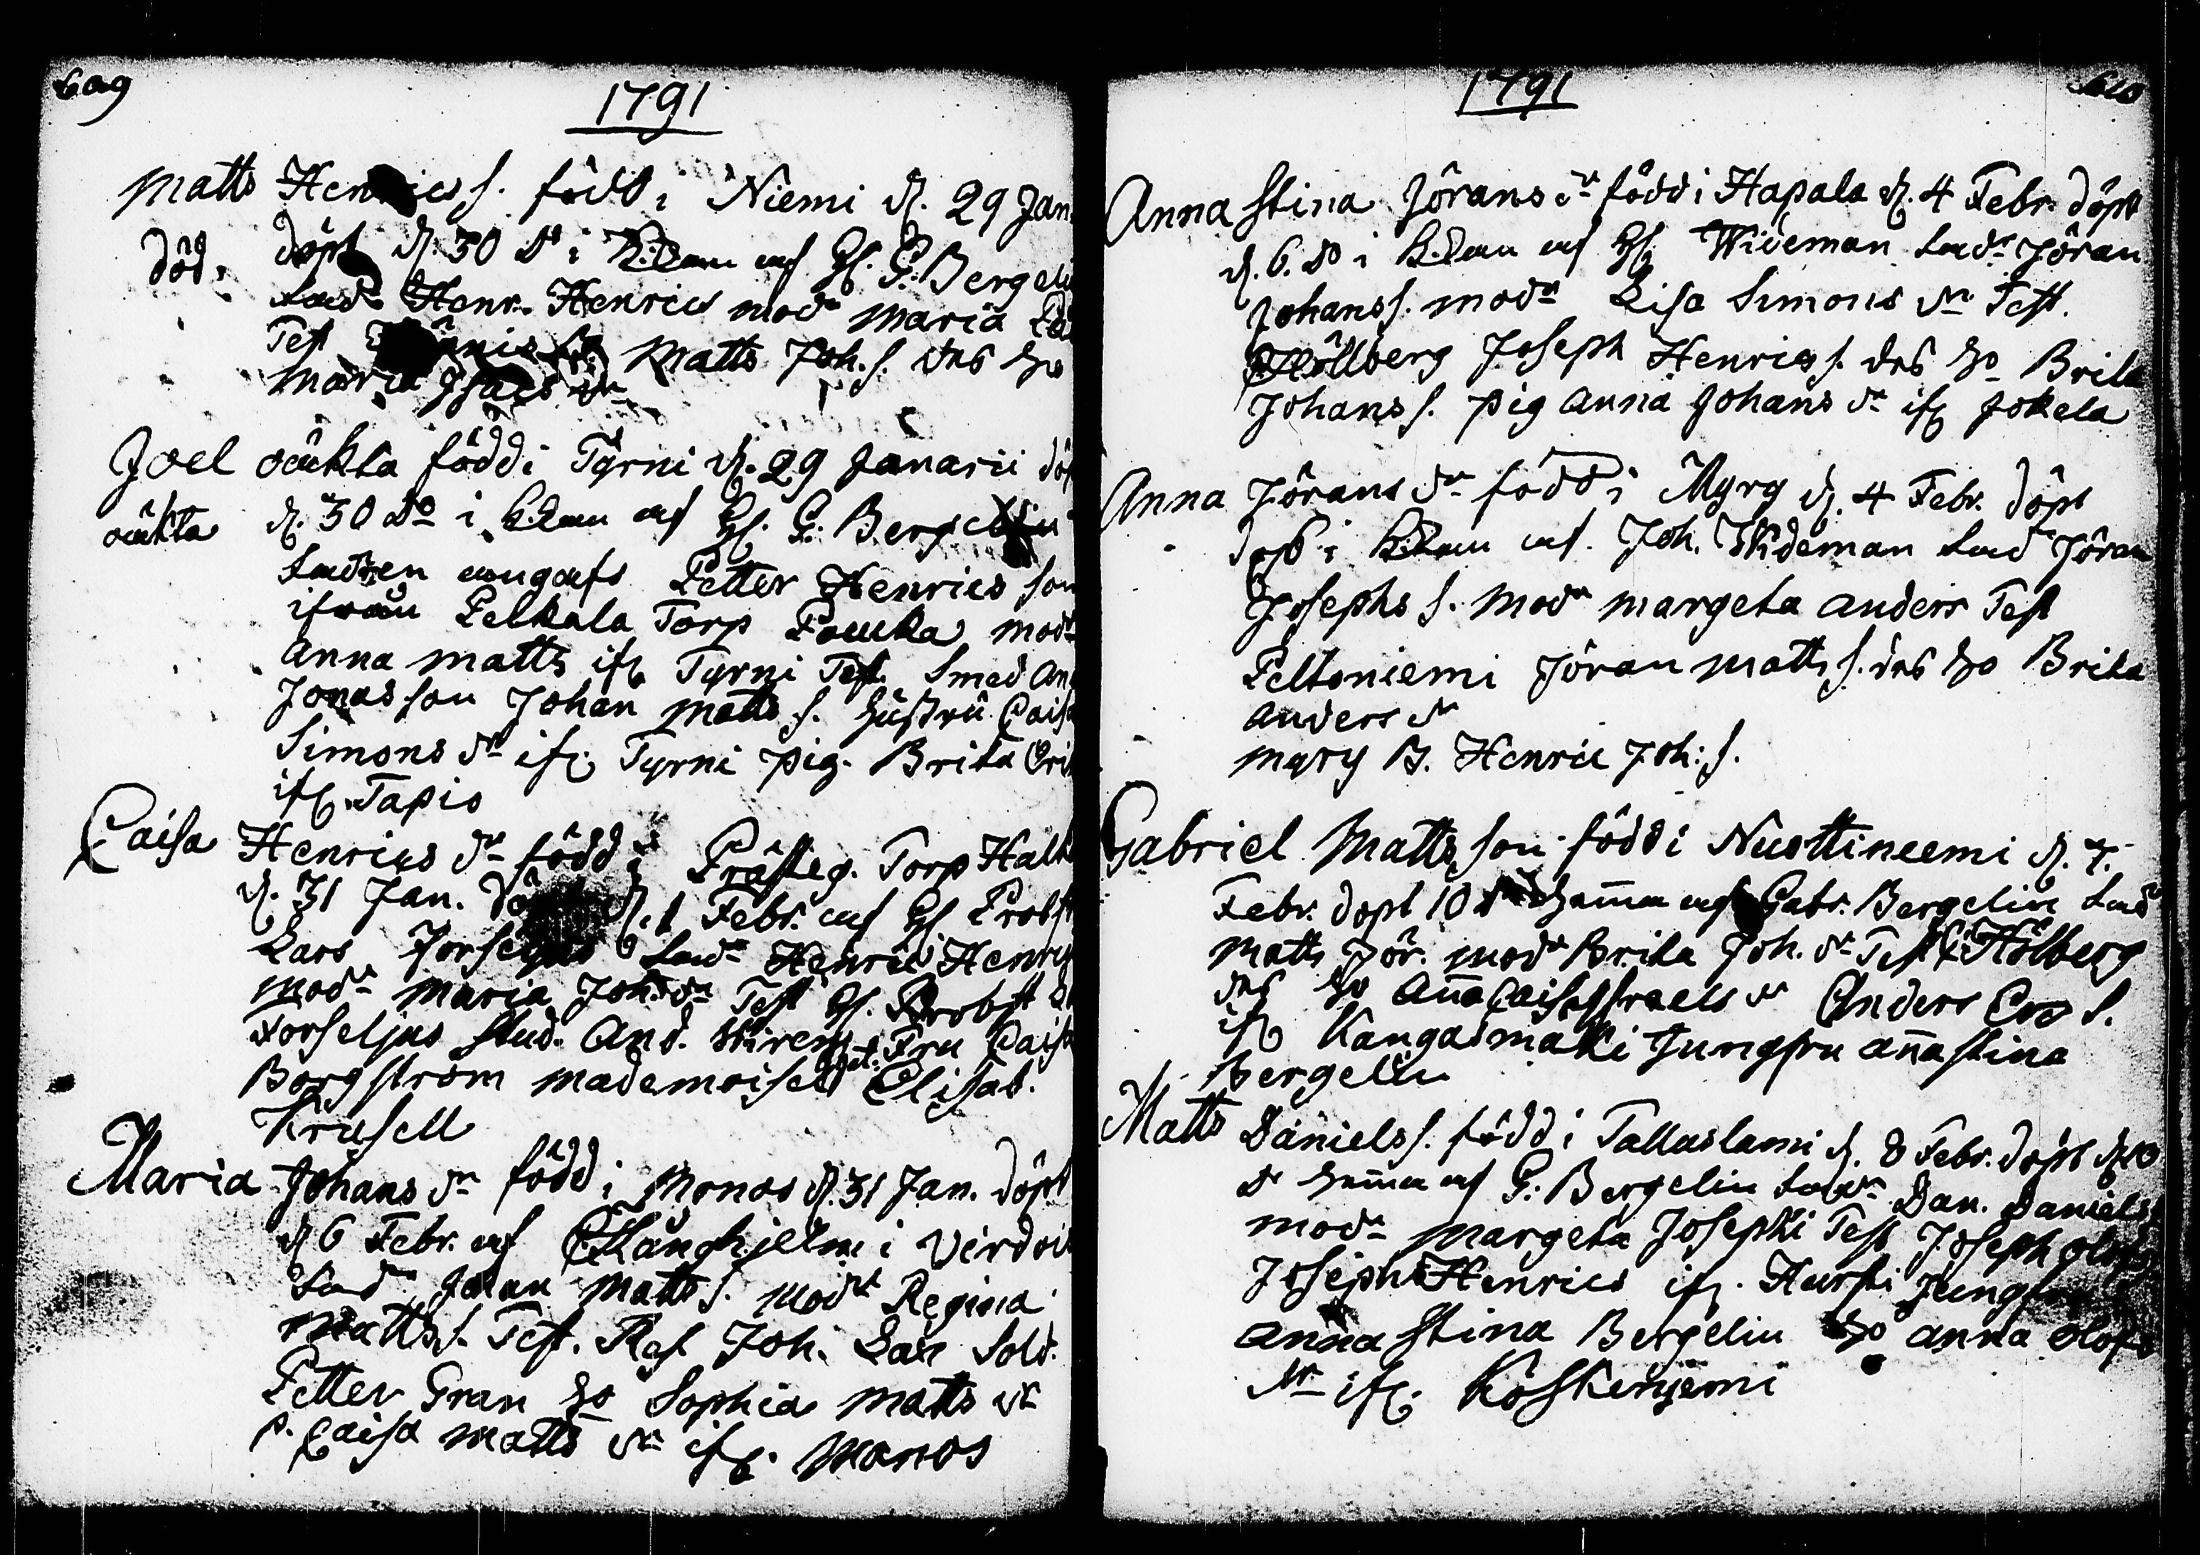 609
1791
Matts Henrics s. född i Niemi d. 29 Jan
död. döpt d. 30 do i af H. G: Bergeli
Henr. Henrics modr Maria
Test Matts Joh. s. des ho
Maria Isacs dr
Joel oäkta född i Tyrni d. 29 Januarii döp
oäkta d. 30 do i af H. G: Bergelin
angafs Petter Henrics son
ifrån Pelkala Torp Pouka modr
Anna Matts ifr Tyrni Test. Smed And
Jonasson Johan Matts s. hustru Caisa
Simons dr ifr. Tyrni pig. Brita Eri
ifr. Tapio
Caisa Henrics dr född i Prästeg. Torp
d. 31 Jan. d. 1 Febr. af H Probst
Lars Henric Henrics
modr Maria Joh. dr Test H. Probst
Forseljus Stud. And. Fru Caisa
Borgström mademoisell Elisab.
Krusell
Maria Johans dr född i Monos d. 31 Jan. döpt
d 6 Febr. af Långhjelm i Virdois
Johan Matts s. modr Regina
Matts s. Test. Joh. Sold.
Petter Gran ho Sophia Matts dr
p. Caisa Matts dr ifr. Monos
610
1791
Anna Stina Jörans dr född i Hapala d. 4 Febr. döpt
d. 6. do i af H. Wideman Jöran
Johans s. modr Lisa Simons dr Test.
Hällberg Joseph Henrics s. des ho Brita
Johans s. pig Anna Johans dr ifr Jokela
Anna Jörans dr född i Myry d. 4 Febr. döpt
i af. Joh. Wideman Jöran
Josephs s. modr Margeta Anders Test
Peltoniemi Jöran Matts s. des ho Brita
Anders dr
Myry B. Henric Joh: s.
Gabriel Mattsson född i Nuottineemi d. 7.
Febr. döpt 10 do hema af Gabr. Bergelin
Matts Jör. modr Brita Joh. dr Test Hölberg
des ho Anna Caisa Israels dr Anders s.
ifr Kangasmaki Jungfru Anna Stina
Bergelin
Matts Daniels s. född i Tallaslami d. 8 Febr. döpt d. 10
do hemma af G: Bergelin Dan. Daniels
modr Margeta Josephi Test Joseph Olofs
Joseph Henrics ifr. Hurski Jungfru
Anna Stina Bergelin ho Anna Olofs
dr ifr. Koskenjemi